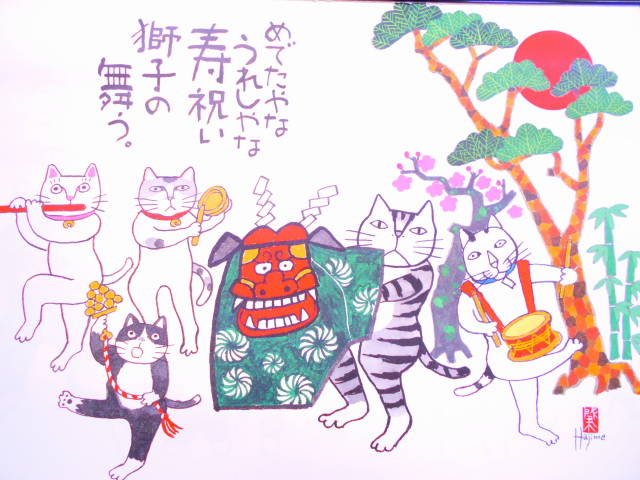 めでたやな
うれしやな
寿祝い
獅子の
舞う。
Hajime